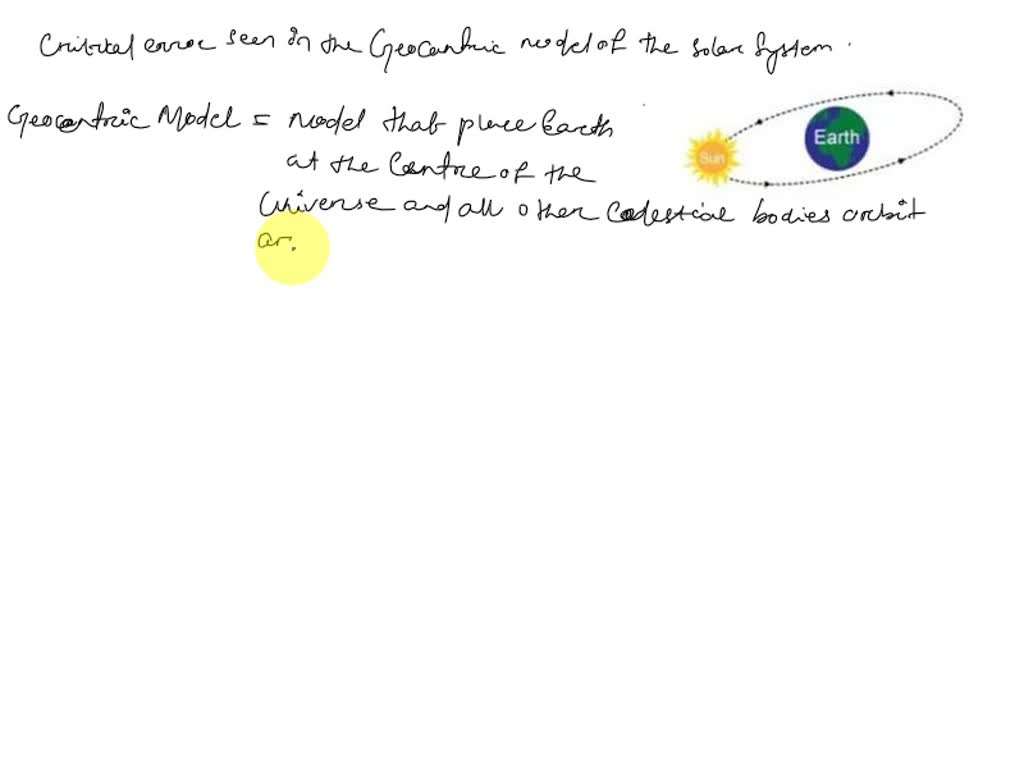 Critical error seen in the Geocentric model of the solar System.
Geocentric Model = model that place Earth
at the Centre of the
Universe and all other Celestial bodies orbit
ar.
Sun
Earth